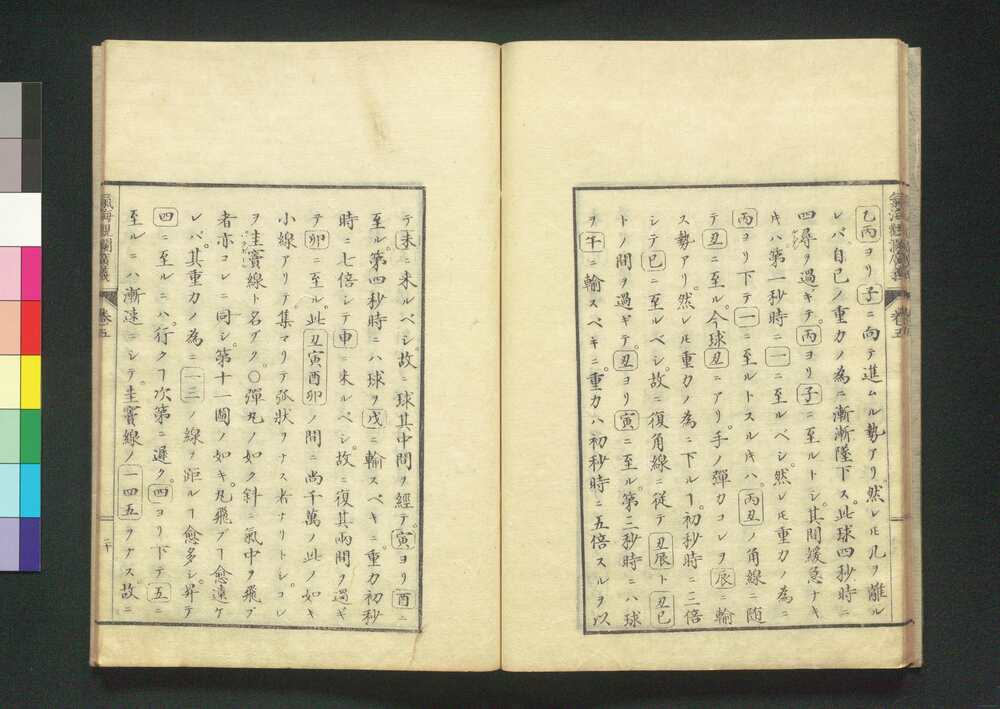 乙丙ヨリ子ニ向テ進ムル勢アリ然レ𪜈几ヲ離ル
レバ自己ノ重力ノ為ニ漸漸墜下ス此球四秒時ニ
四尋ヲ過ギテ丙ヨリ子ニ至ルトシ其間緩急ナキ
キハ第一秒時ニ一ニ至ルベシ然レ𪜈重力ノ為ニ
丙ヨリ下テ一ニ至ルトスル𪜈ハ丙丑ノ角線ニ随
テ丑ニ至ル今球丑ニアリ手ノ弾力コレヲ辰ニ輸
ス勢アリ然レ𪜈重力ノ為ニ下ルヿ初秒時ニ三倍
シテ巳ニ至ルベシ故ニ復角線ニ従テ丑辰ト丑巳
トノ間ヲ過ギテ丑ヨリ寅ニ至ル第三秒時ニハ球
ヲ午ニ輸スベキニ重力ハ初秒時ニ五倍スルヲ以
テ未ニ来ルベシ故ニ球其中間ヲ経テ寅ヨリ酉ニ
至ル第四秒時ニハ球ヲ戌ニ輸スベキニ重力初秒
時ニ七倍シテ申ニ来ルベシ故ニ復其両間ヲ過ギ
テ卯ニ至ル此丑寅酉卯ノ間ニ尚千萬ノ此ノ如キ
小線アリテ集マリテ弧状ヲナス者ナリトシコレ
ヲ圭竇線ト名ヅク○弾丸ノ如ク斜ニ氣中ヲ飛ブ
者亦コレニ同シ第十一圖ノ如キ丸飛ブヿ愈遠ケ
レバ其重力ノ為ニ一三ノ線ヲ距ルヿ愈多シ昇テ
四ニ至ルニハ行クヿ次第ニ遅ク四ヨリ下テ五ニ
至ルニハ漸速ニシテ圭竇線ノ一四五ヲナス故ニ
氣海觀瀾廣義
卷五
二十